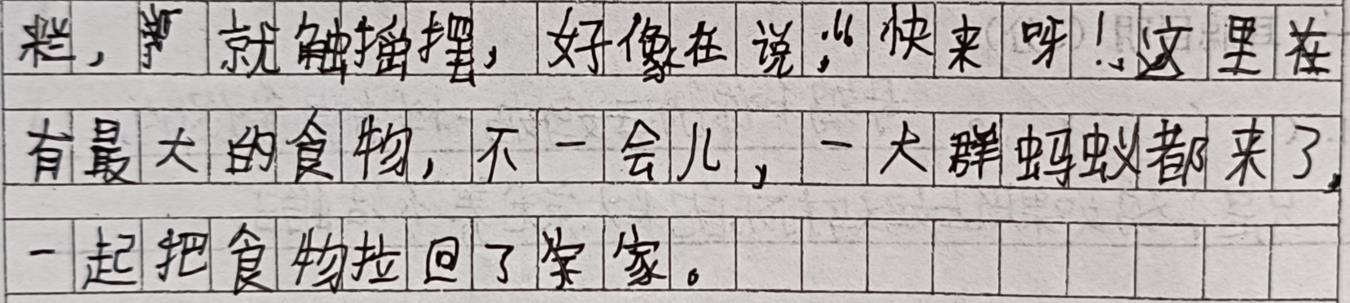 栏,就触摇摆,好像在说:“快来呀!这里在
有最大的食物,不一会儿,一大群蚂蚁都来了,
一起把食物拉回了家。